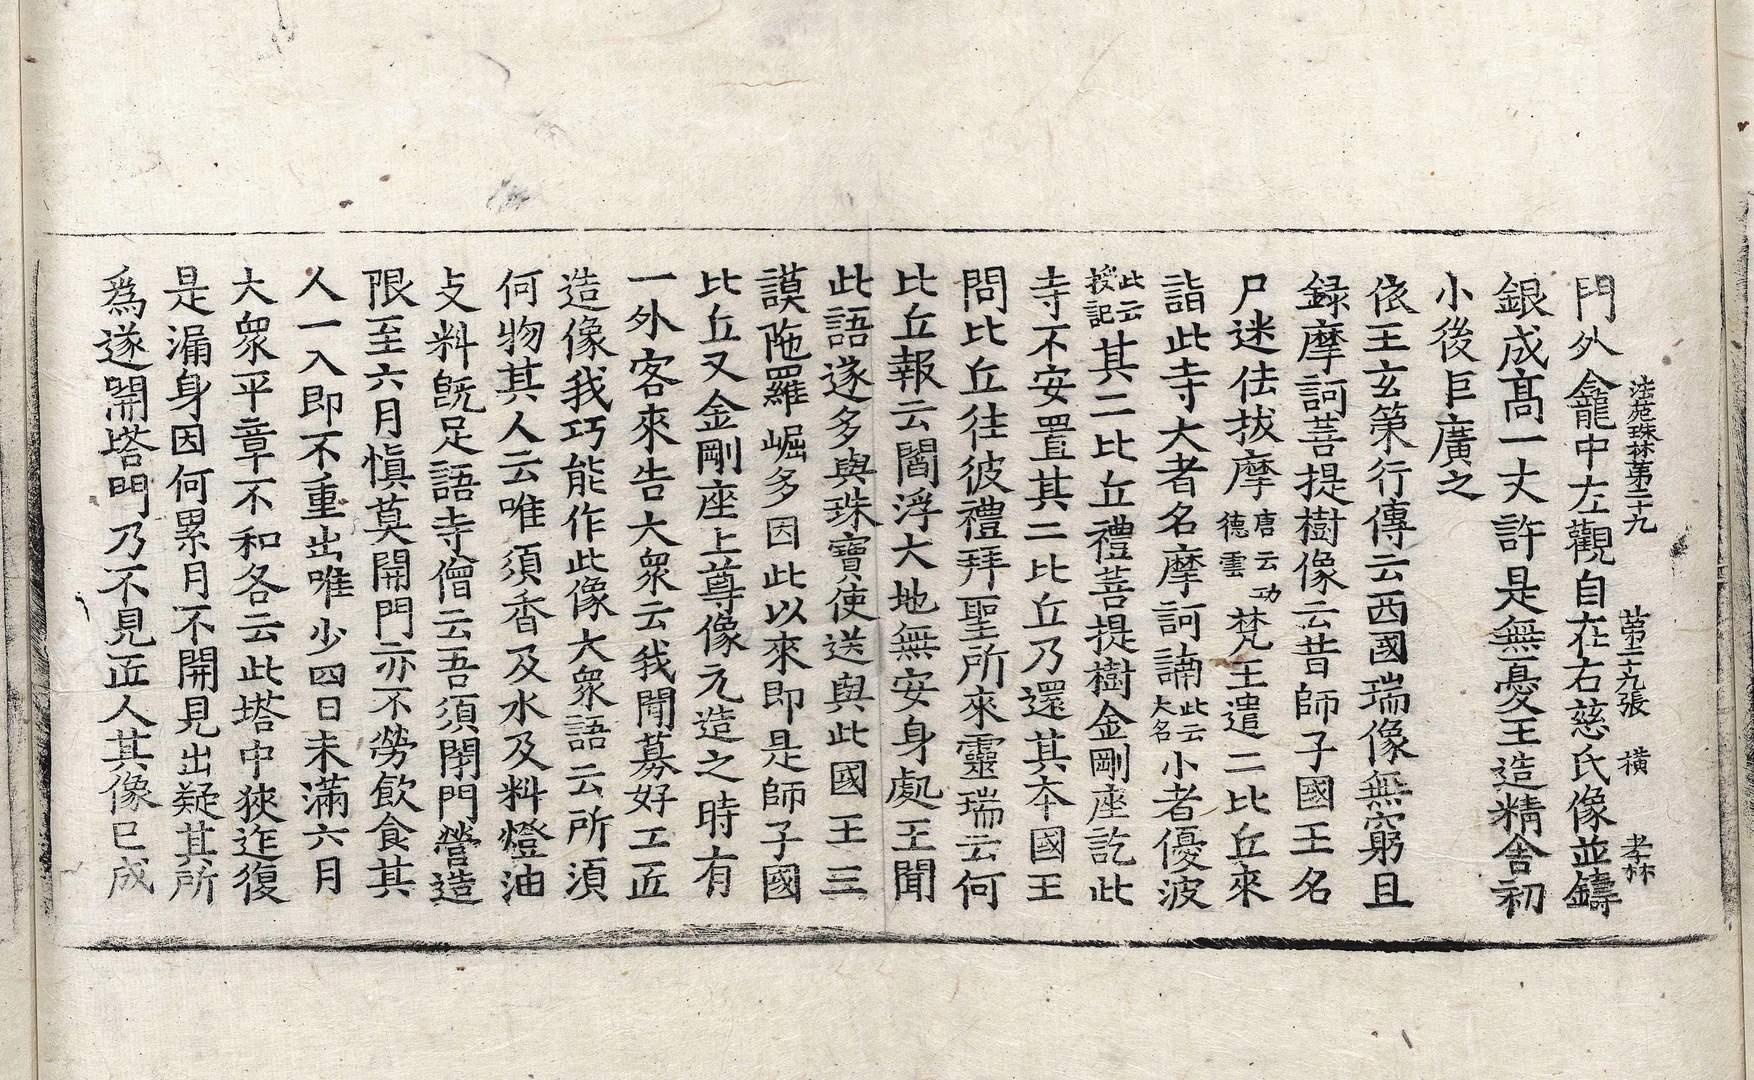 法苑珠林第二十九　第二十九張　橫　孝林
門外龕中左觀自在右慈氏像並鑄
銀成髙一丈許是無憂王造精舍初
小後巨廣之
依王玄策行傳云西國瑞像無窮且
録摩訶菩提樹像云昔師子國王名
尸迷佉拔摩唐云功德雲梵王遣二比丘來
詣此寺大者名摩訶諵此云大名小者優波
此云授記其二比丘禮菩提樹金剛座訖此
寺不安置其二比丘乃還其本國王
問比丘往彼禮拜聖所來靈瑞云何
比丘報云閻浮大地無安身處王聞
此語遂多與珠寶使送與此國王三
謨陁羅崛多因此以來即是師子國
比丘又金剛座上尊像元造之時有
一外客來告大衆云我聞募好工匠
造像我巧能作此像大衆語云所湏
何物其人云唯須香及水及料燈油
攴料旣足語寺僧云吾須閉門營造
限至六月慎莫開門亦不勞飲食其
人一入即不重出唯少四日未滿六月
大衆平章不和各云此塔中狹迮復
是漏身因何累月不開見出疑其所
爲遂開塔門乃不見匠人其像已成